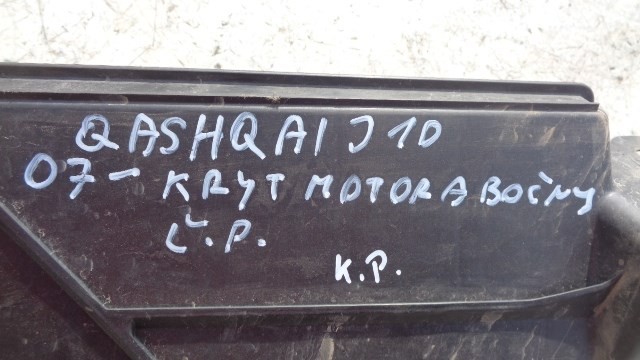 QASHQAI J10
07- KRYT MOTORA BOČNY
Ľ.P.
K.P.